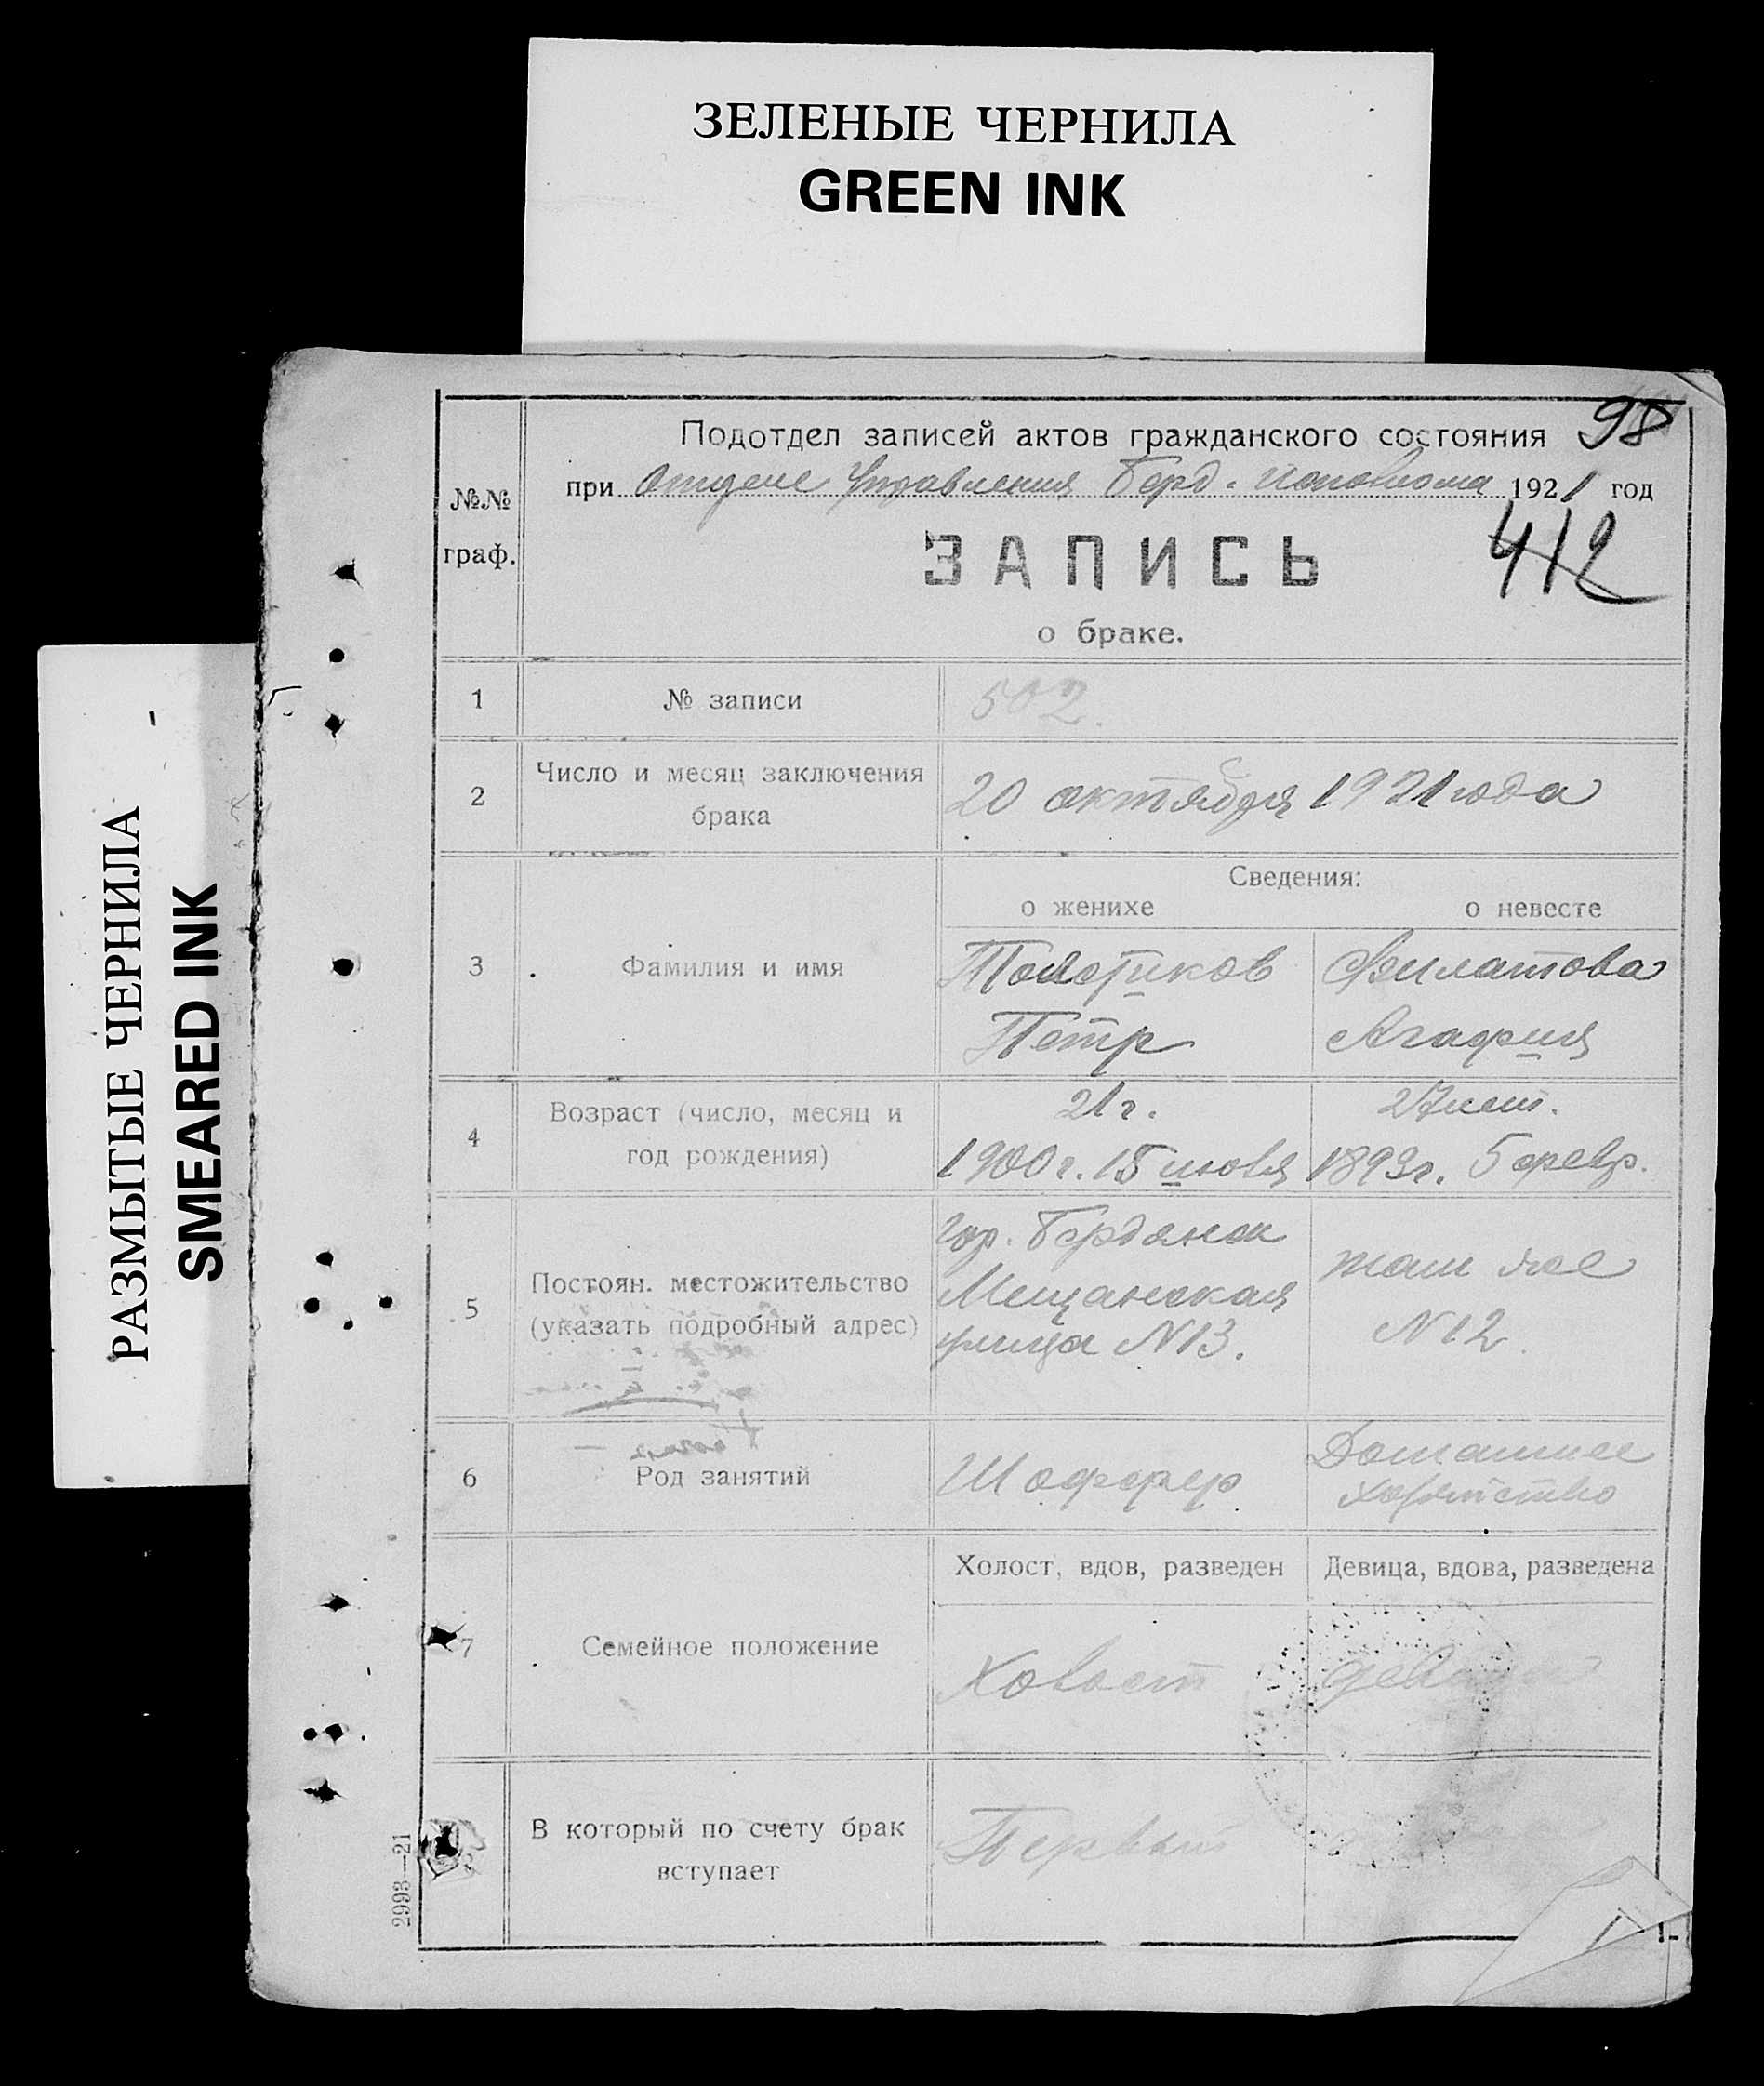 ЗЕЛЕНЫЕ ЧЕРНИЛА
GREEN INK
РАЗМЫТЫЕ ЧЕРНИЛА
SMEARED INK
98
Подотдел записей актов гражданского состояния
при Отделе Управления Берд. Исполкома 1921 год
№№
граф.
412
ЗАПИСЬ
о браке.
1 № записи 502.
2 Число и месяц заключения
брака
20 октября 1921 года
Сведения:
о женихе о невесте
3 Фамилия и имя
Филатова
Петр Агафия
4 Возраст (число, месяц и
год рождения)
21 г. 27 лет.
1900 г. 15 июля 1893 г. 5 февр.
5 Постоян. местожительство
(указать подробный адрес)
гор. Бердянск
Мещанская
улица N 13.
там же
N 12
6 Род занятий
Шоффер
Домашнее
хозяйство
Холост, вдов, разведен Девица, вдова, разведена
7 Семейное положение
Холост девица
В который по счету брак
вступает
Первый
2993—21